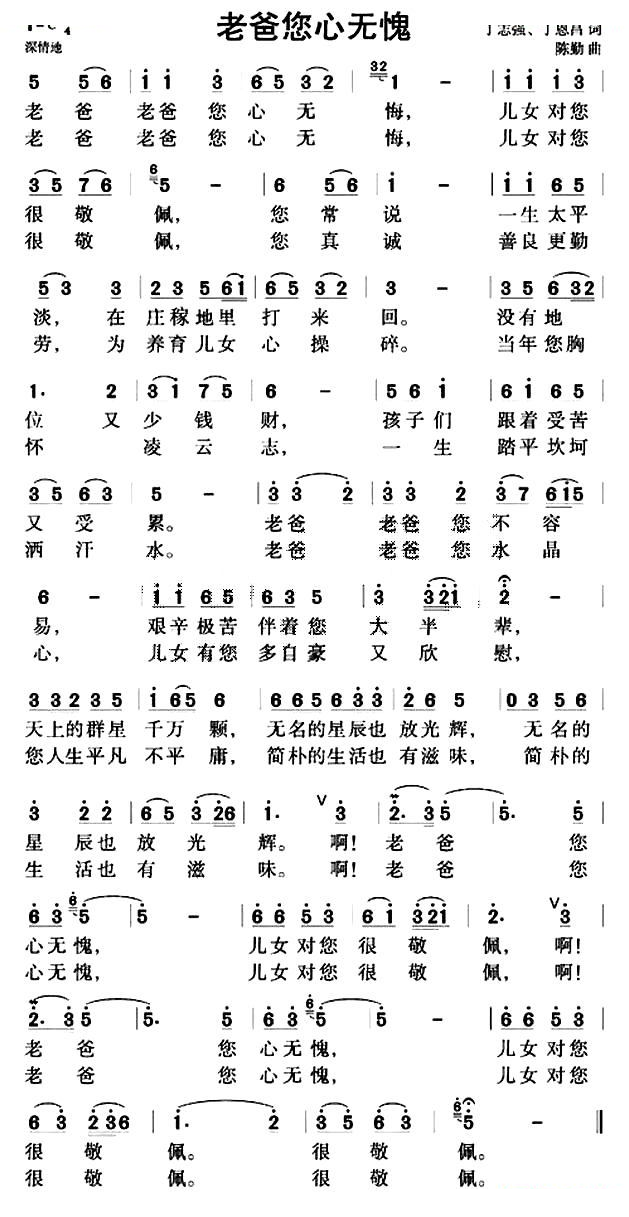 老爸您心无愧
丁志强、丁恩昌 词
深情地
陈勤 曲
5 56 | 1 1 3 | 65 32 | 1 - | 1 1 1 3 |
老 爸 老爸 您 心 无 悔, 儿女对您
老 爸 老爸 您 心 无 悔, 儿女对您
35 76 | 5 - | 6 56 | 1 - | 1 1 6 5 |
很 敬 佩, 您 常 说 一生太平
很 敬 佩, 您 真 诚 善良更勤
53 3 | 2 3 5 61 | 65 32 | 3 - | 35 632 |
淡, 在 庄稼地里 打 来 回。 没有地
劳, 为 养育儿女 心 操 碎。 当年您胸
1. 2 | 31 75 | 6 - | 5 6 1 | 6 1 6 5 |
位 又 少 钱 财, 孩子们 跟着受苦
怀 凌 云 志, 一 生 踏平坎坷
35 63 | 5 - | 3 3 2 | 3 3 2 | 3 7 61 5 |
又 受 累。 老爸 老爸 您 不 容
洒 汗 水。 老爸 老爸 您 水 晶
6 - | 1 1 6 5 | 6 3 5 | 3 321 | 2 - |
易, 艰辛极苦 伴着您 大 半 辈,
心, 儿女有您 多自豪 又 欣 慰,
3 3 2 3 5 | 1 65 6 | 6 6 5 6 3 3 | 2 6 5 | 0 3 5 6 |
天上的群星 千万 颗, 无名的星辰也 放光辉, 无名的
您人生平凡 不平 庸, 简朴的生活也 有滋味, 简朴的
3 2 2 | 65 326 | 1. V 3 | 2. 3 5 | 5. 5 |
星 辰也 放 光 辉。 啊! 老 爸 您
生 活也 有 滋 味。 啊! 老 爸 您
6 3 5 | 5 - | 6 6 5 3 | 61 321 | 2. V 3 |
心无愧, 儿女对您 很 敬 佩, 啊!
心无愧, 儿女对您 很 敬 佩, 啊!
2. 3 5 | 5. 5 | 6 3 5 | 5 - | 6 6 5 3 |
老 爸 您 心无愧, 儿女对您
老 爸 您 心无愧, 儿女对您
63 236 | 1. 2 | 63 2 3 | 5 - ‖
很 敬 佩。 很 敬 佩。
很 敬 佩。 很 敬 佩。